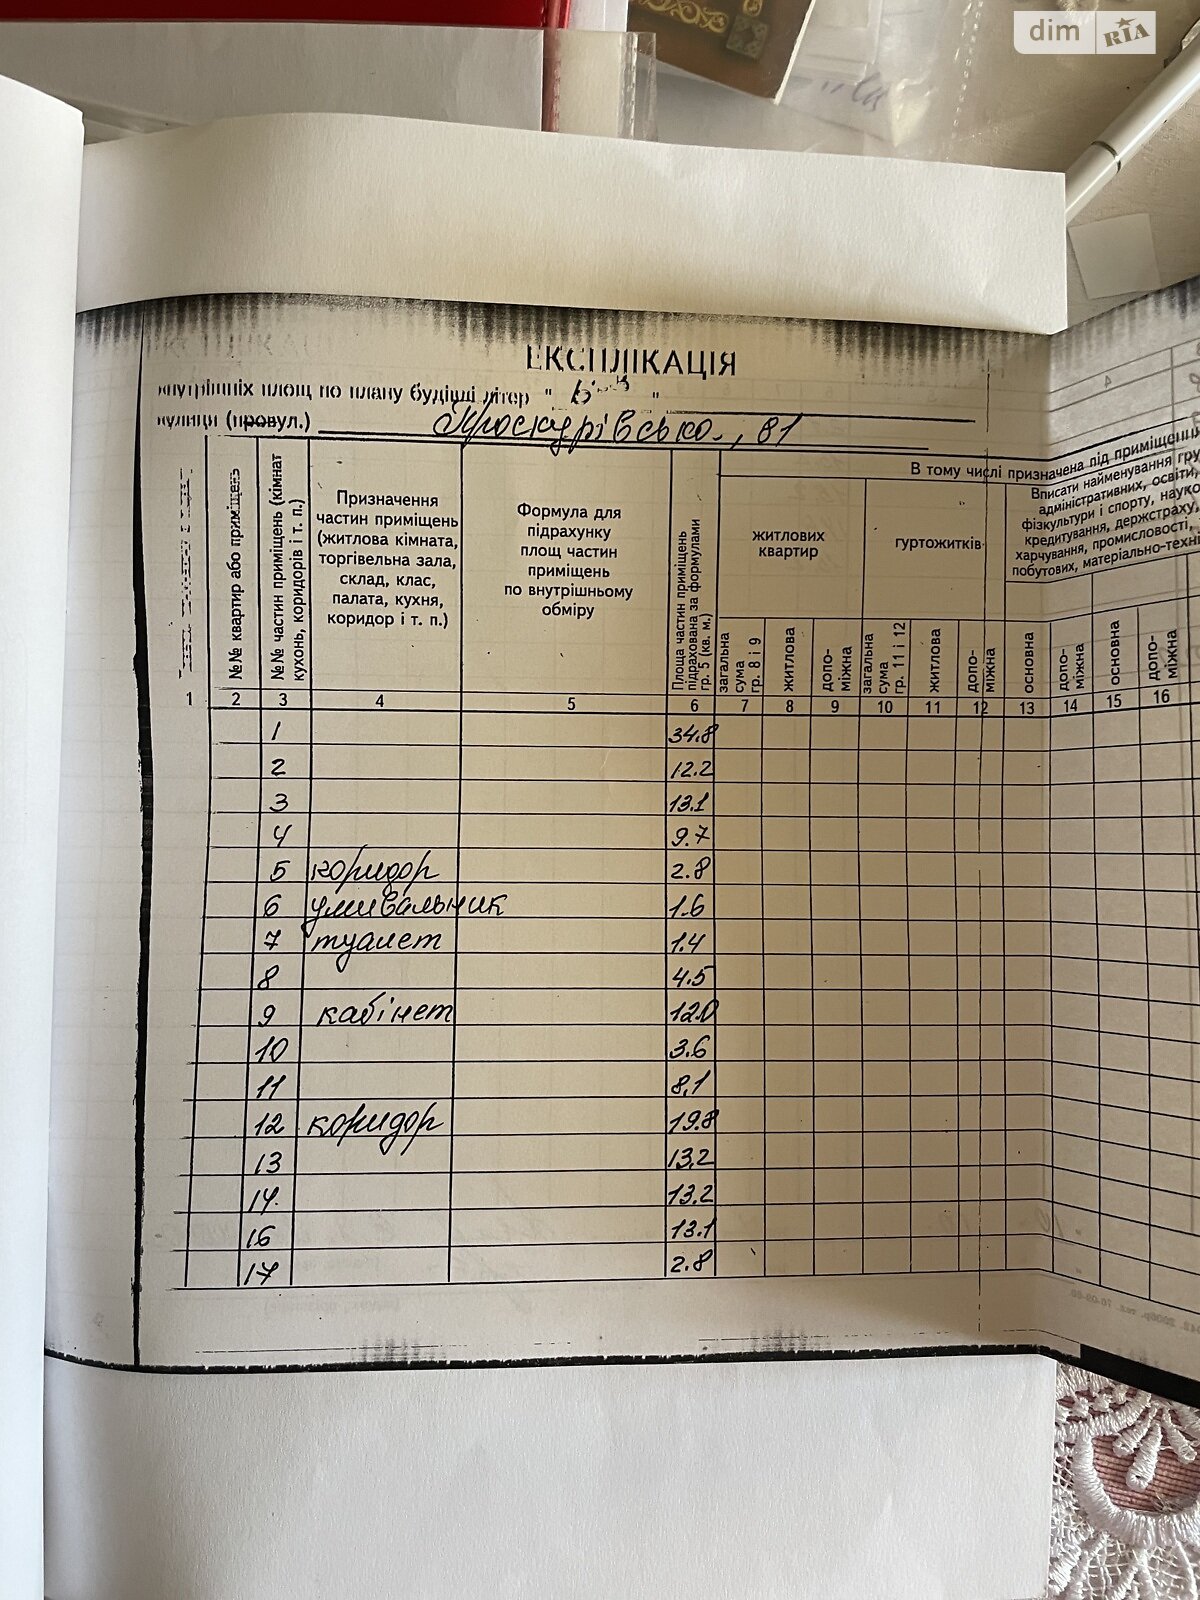 dim RIA
ЕКСПЛІКАЦІЯ
внутрішніх площ по плану будівлі літер " "
вулиці (провул.) Проскурівсько., 81
№№ квартир або приміщень
№№ частин приміщень (кімнат
кухонь, коридорів і т. п.)
Призначення
частин приміщень
(житлова кімната,
торгівельна зала,
склад, клас,
палата, кухня,
коридор і т. п.)
Формула для
підрахунку
площ частин
приміщень
по внутрішньому
обміру
Площа частин приміщень
підрахована за формулами
гр. 5 (кв. м.)
В тому числі призначена під приміщення
житлових
квартир
гуртожитків
Вписати найменування гру
адміністративних, освіти,
фізкультури і спорту, науко
кредитування, держстраху,
харчування, промисловості,
побутових, матеріально-техні
загальна
сума
гр. 8 і 9
житлова
допо-
міжна
загальна
сума
гр. 11 і 12
житлова
допо-
міжна
основна
допо-
міжна
основна
допо-
міжна
1 2 3 4 5 6 7 8 9 10 11 12 13 14 15 16
1 34.8
2 12.2
3 13.1
4 9.7
5 коридор 2.8
6 умивальник 1.6
7 туалет 1.4
8 4.5
9 кабінет 12.0
10 3.6
11 8,1
12 коридор 19.8
13 13,2
14. 13.2
16 13.1
17 2.8